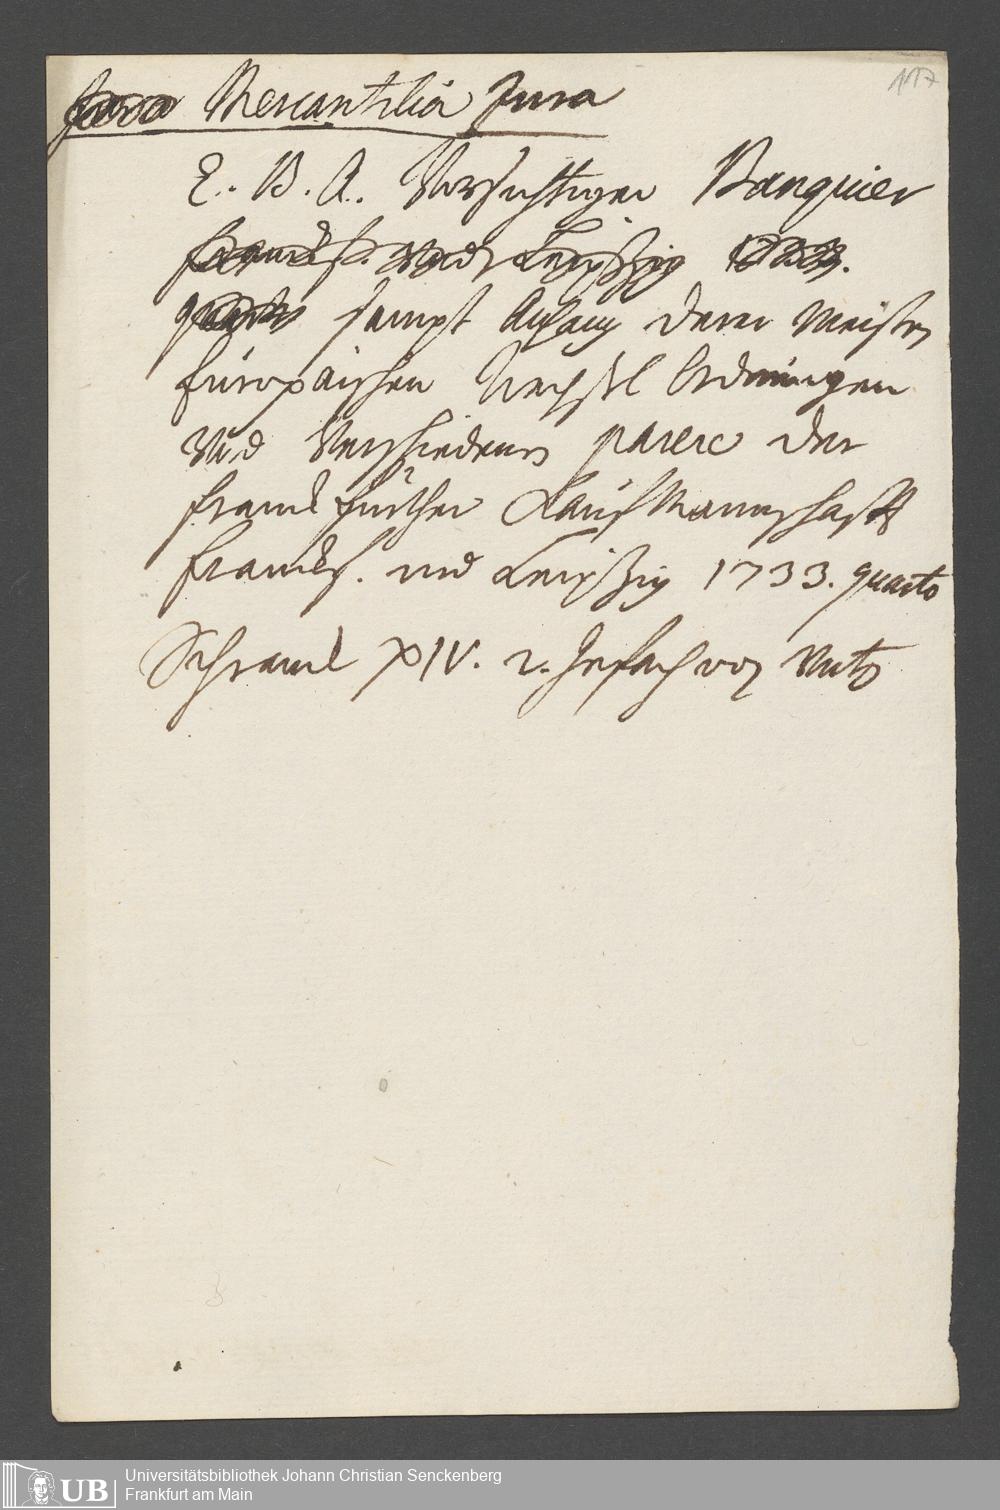 117
Jura Mercantilia Jura
E. B. A. Vorsichtiger Banquier
Franckf. und Leipzig 1733.
quarto sampt Anhang derer meisten
Europäischen Wechsel Ordnungen
und Verschiedenen parere der
Franckfurther Kaufmannschafft
Franckf. und Leipzig 1733. quarto
Schranck XIV. 2. Gefach von unten
UB
Universitätsbibliothek Johann Christian Senckenberg
Frankfurt am Main